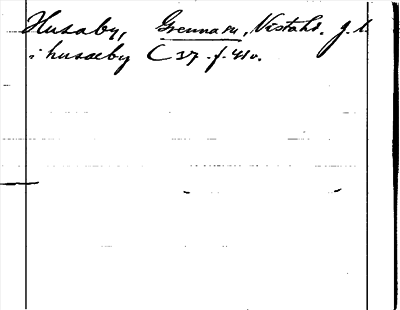 Husaby, Grenna sn, Vistahd. J. l.
i husaeby C 37 f. 41v.